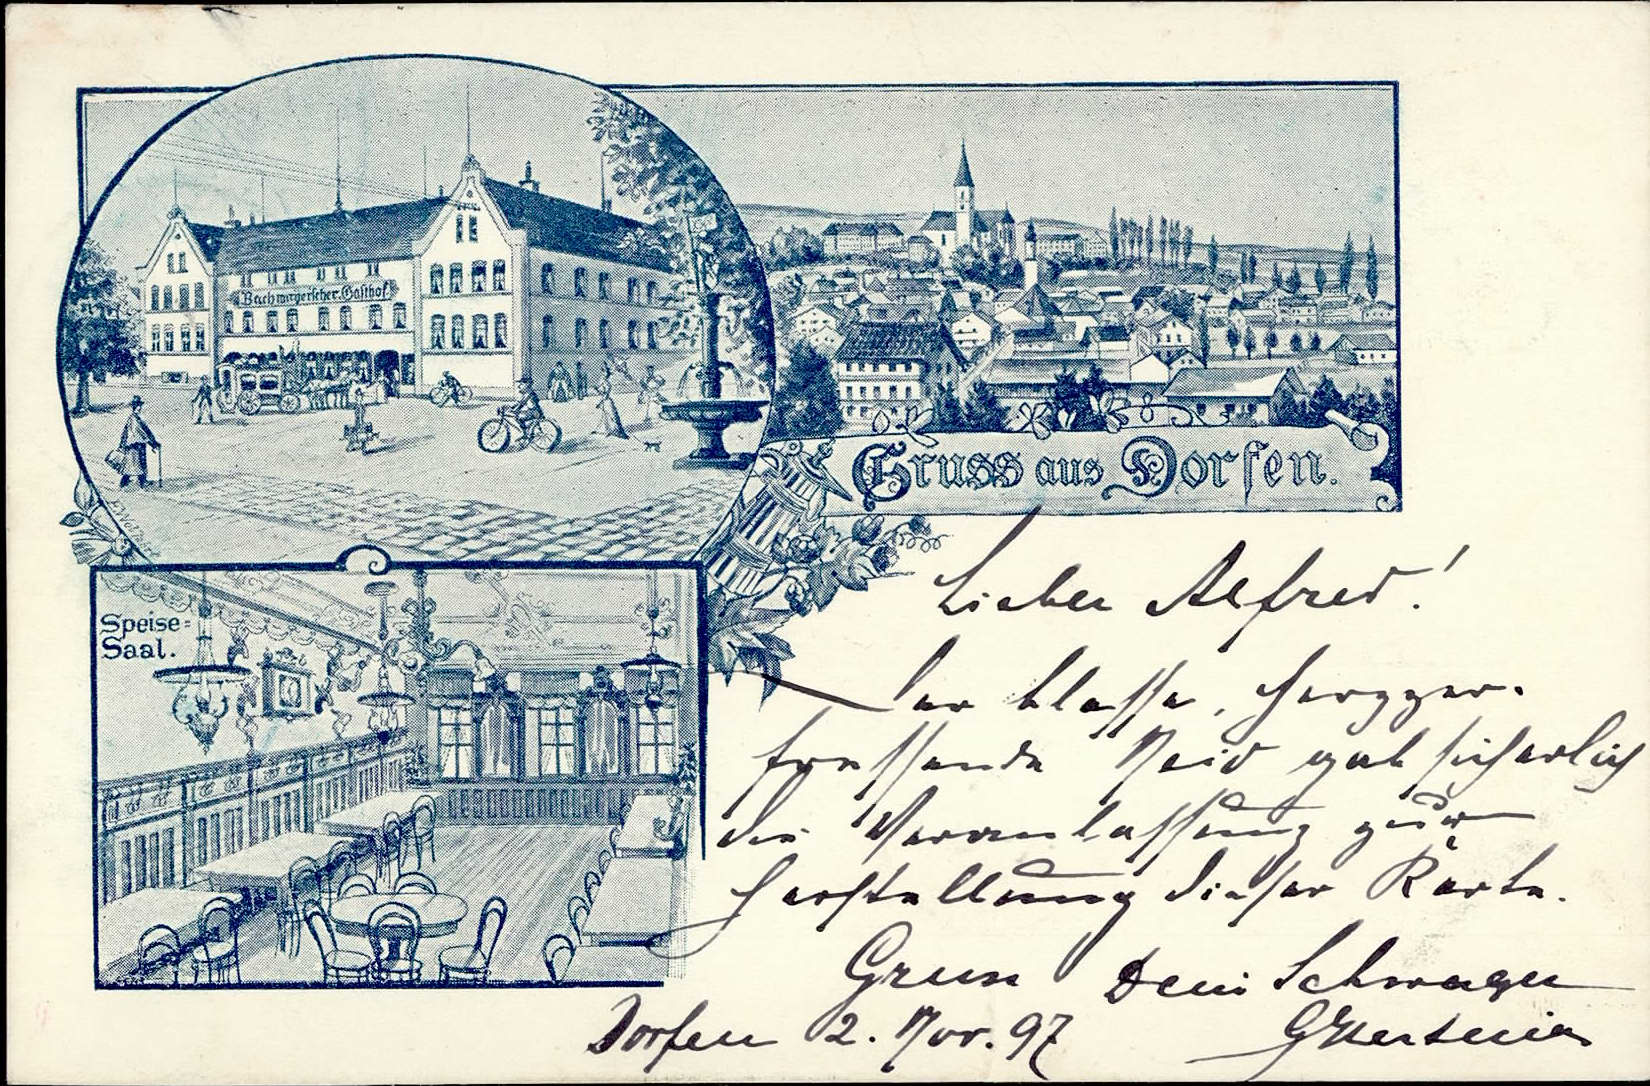 Bachmayerscher Gasthof
Gruss aus Dorfen.
Speise-
Saal.
Lieber Alfred!
Der blasse, herzzer-
fressende Neid gab sicherlich
die Veranlassung zur
Herstellung dieser Karte.
Gruss Dein Schwager
Dorfen 2. Nov. 97